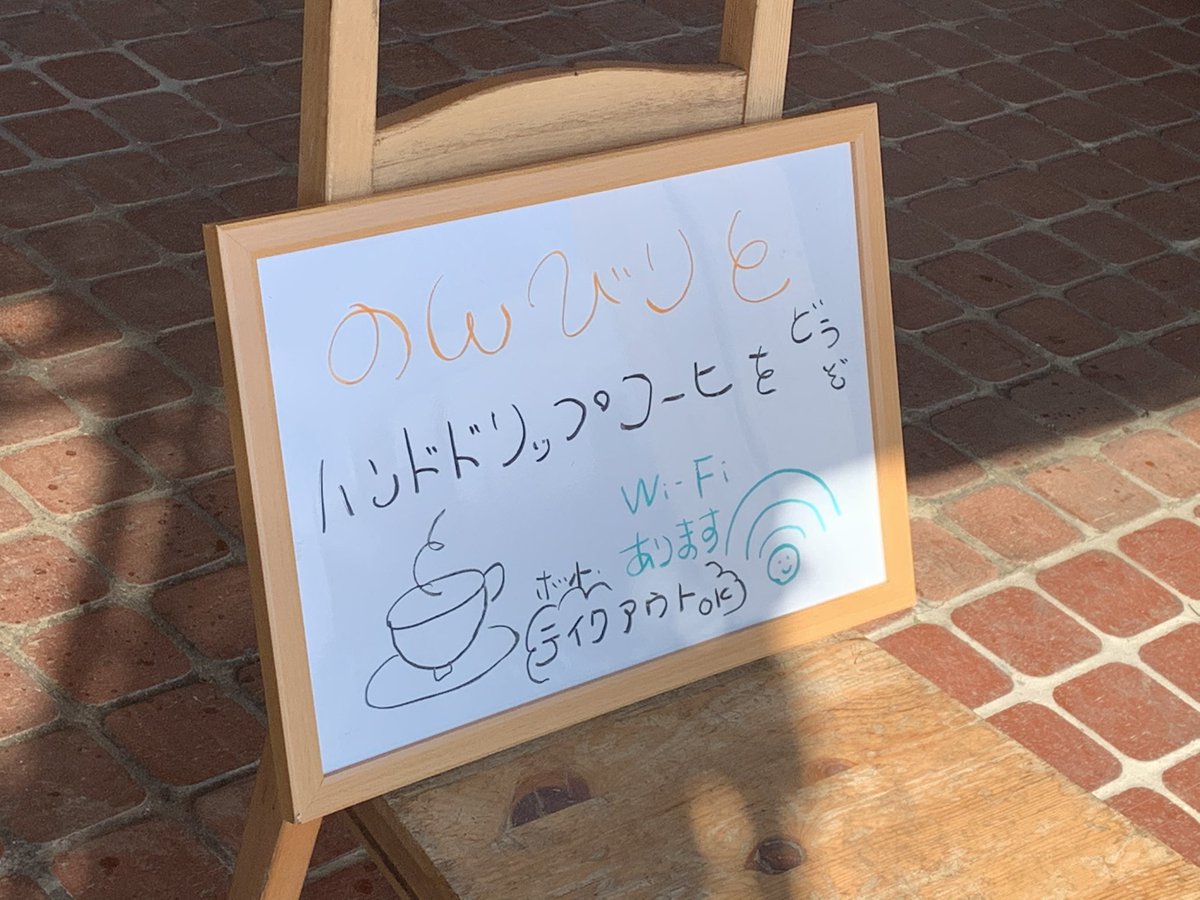 のんびりと
ハンドドリップコーヒを
どうぞ
Wi-Fi
あります
テイクアウトOK